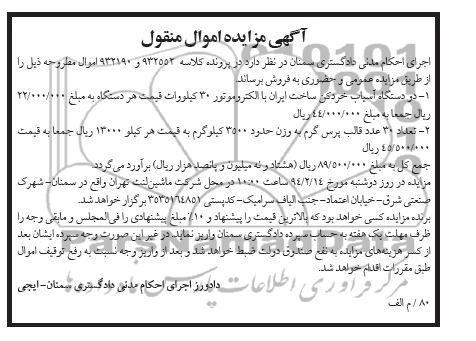 آگهی مزایده اموال منقول
اجرای احکام مدنی دادگستری سمنان در نظر دارد در پرونده کلاسه ۹۳۲۵۵۲ و ۹۳۲۱۹۰ اموال مطروحه ذیل را
از طریق مزایده عمومی و حضوری به فروش برساند.
۱- دو دستگاه آسیاب خردکن ساخت ایران با الکتروموتور ۳۰ کیلووات قیمت هر دستگاه به مبلغ ۲۲/۰۰۰/۰۰۰
ریال جمعا به مبلغ ۴۴/۰۰۰/۰۰۰ ریال
۲- تعداد ۳۰ عدد قالب پرس گرم به وزن حدود ۳۵۰۰ کیلوگرم به قیمت هر کیلو ۱۳۰۰۰ ریال جمعا به قیمت
۴۵/۵۰۰/۰۰۰ ریال
جمع کل به مبلغ ۸۹/۵۰۰/۰۰۰ ریال (هشتاد و نه میلیون و پانصد هزار ریال) برآورد می‌گردد.
مزایده در روز دوشنبه مورخ ۹۴/۲/۱۴ ساعت ۱۰:۰۰ در محل شرکت ماشین لنت تهران واقع در سمنان- شهرک
صنعتی شرق- خیابان اعتماد- جنب الیاف سرامیک- کدپستی ۳۵۳۵۱۶۴۸۵۱ برگزار خواهد شد.
برنده مزایده کسی خواهد بود که بالاترین قیمت را پیشنهاد و ۱۰٪ مبلغ پیشنهادی را فی‌المجلس و مابقی وجه را
ظرف مهلت یک هفته به حساب سپرده دادگستری سمنان واریز نماید. در غیر این صورت وجه سپرده ایشان بعد
از کسر هزینه‌های مزایده به نفع صندوق دولت ضبط خواهد شد و بعد از واریز وجه نسبت به رفع توقیف اموال
طبق مقررات اقدام خواهد شد.
دادورز اجرای احکام مدنی دادگستری سمنان- ایچی
۸۰ / م الف
مرکز فرآوری اطلاعات